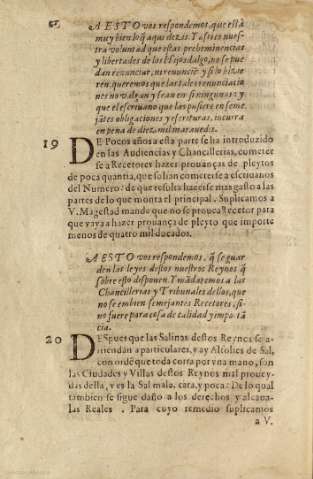 A ESTO vos respondemos, que està
muy bien lo q̃ aqui dezis. Y assi es nues-
tra voluntad que estas preheminencias
y libertades de los Hijosdalgo, no se pue-
dan renunciar, ni renuncië: y si lo hizie-
ren, queremos que las tales renunciacio-
nes no valgan y sean en si ningunas: y
que el escriuano que las pusiere en seme-
jãtes obligaciones y escrituras, incurra
en pena de diez mil marauedis.
19 DE Pocos años a esta parte se ha introduzido
en las Audiencias y Chancillerias, cometer
se a Recetores hazer prouanças de pleytos
de poca quantia, que solian cometerse a escriuanos
del Numero: de que resulta hazerse mas gasto a las
partes de lo que monta el principal. Suplicamos a
V. Magestad mande que no se prouea Recetor para
que vaya a hazer prouança de pleyto que importe
menos de quatro mil ducados.
A ESTO vos respondemos, q̃ se guar
den las leyes destos nuestros Reynos q̃
sobre esto disponen. Y mãdaremos a las
Chancillerias y Tribunales dellos, que
no se embien semejantes Recetores, si-
no fuere para cosa de calidad y impor tã
cia.
20 DEspues que las Salinas destos Reynos se a-
rriendan a particulares, y ay Alfolies de Sal,
con ordẽ que toda corra por vna mano, son
las Ciudades y Villas destos Reynos mal prouey-
das della, y es la Sal mala, cara, y poca: De lo qual
tambien se sigue daño a los derechos y alcaua-
las Reales. Para cuyo remedio suplicamos
a V.